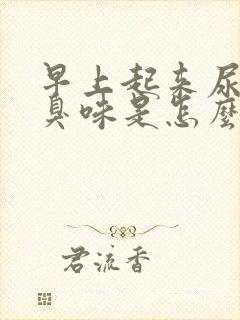 早上起来尿
臭味是怎麽
君流香